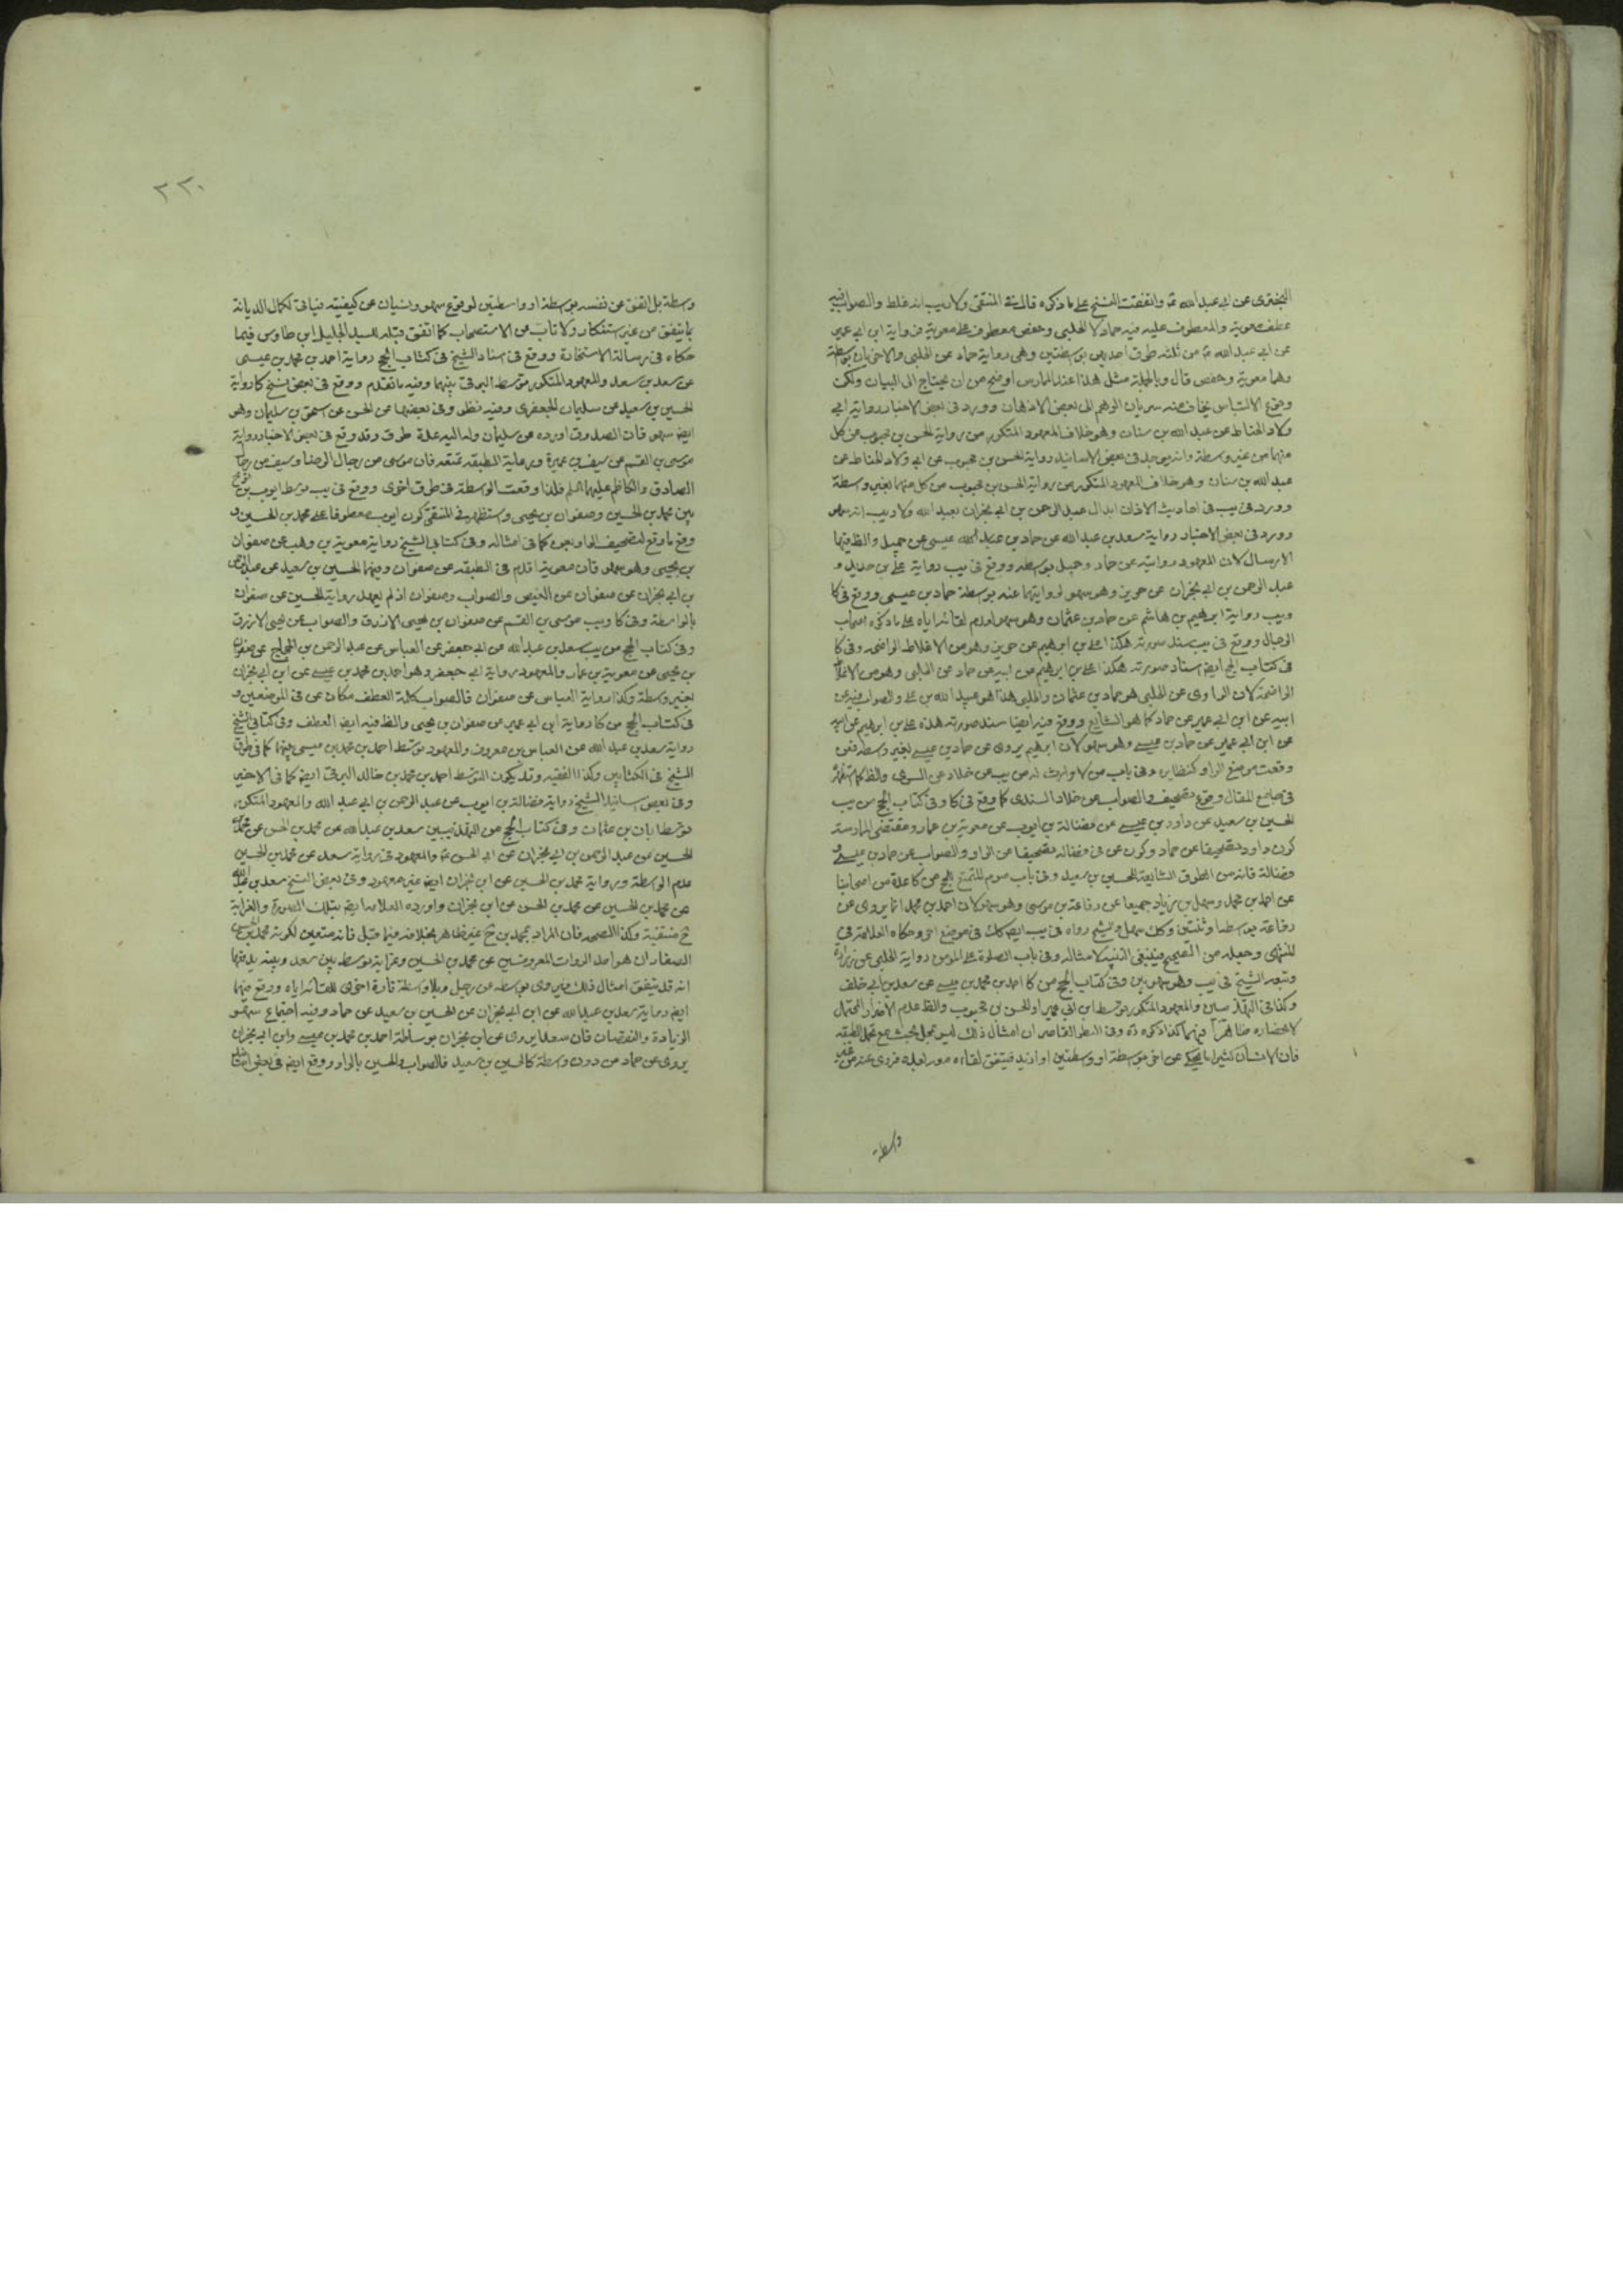 البختري عن ابي عبد الله ع واتفقت النسخ على ما ذكره قال في المنتقى ولا ريب انه غلط والصواب فيه
عطف معوية والمعطوف عليه فيه حماد لا الحلبي وحفص معطوف على معوية فرواية ابن ابي عمير
عن ابي عبد الله ع من ثلثه طرق احديهن بوسطتين وهي رواية حماد عن الحلبي والاخريان بوسطة
وهما معوية وحفص قال وبالجملة مثل هذا عند الممارس اوضح من ان يحتاج الى البيان ولكن
وقوع الالتباس يخاف منه سريان الوهم الى بعض الاذهان وورد في بعض الاخبار رواية ابي
ولاد الحناط عن عبد الله بن سنان وهو خلاف المعهود المتكرر من رواية الحسن بن محبوب عن كل
منهما من غير وسطة وانه يوجد في بعض الاسانيد رواية الحسن بن محبوب عن ابي ولاد الحناط عن
عبد الله بن سنان وهو خلاف المعهود المتكرر من رواية الحسن بن محبوب من كل منهما بغير وسطة
وورد في يب في احاديث الاذان ابدال عبد الرحمن بن ابي نجران بعبد الله ولا ريب انه سهو
وورد في بعض الاخبار رواية سعد بن عبد الله عن حماد بن عيسى عن جميل والظ فيها
الارسال لان المعهود روايته عن حماد وجميل بوسطه ووقع في يب رواية علي بن حديد و
عبد الرحمن بن ابي نجران عن حريز وهو سهو لروايتهما عنه بوسطة حماد بن عيسى ووقع في كا
ويب رواية ابرهيم بن هاشم عن حماد بن عثمان وهو سهو لعدم لقائه اياه على ما ذكره اصحاب
الرجال ووقع في يب سند صورته هكذا علي بن ابرهيم عن حريز وهو من الاغلاط الواضحه وفي كا
في كتاب الحج ايضا اسناد صورته هكذا علي بن ابرهيم عن ابيه عن حماد عن الحلبي وهو من الاغلاط
الواضحة لان الراوي عن الحلبي هو حماد بن عثمان والحلبي هذا هو عبيد الله بن علي والصواب فيه عن
ابيه عن ابن ابي عمير عن حماد كما هو الشايع ووقع فيه ايضا سند صورته هذه علي بن ابرهيم عن ابيه
عن ابن ابي عمير عن حماد بن عيسى وهو سهو لان ابرهيم يروي عن حماد بن عيسى بغير وسطه فعن
وقعت موضع الواو كنظايره وفي باب من لا وارث له من يب عن خلاد عن السري والظ كما
في جامع المقال وقوع تصحيف والصواب عن خلاد السندي كما وقع في كا وفي كتاب الحج من يب
الحسين بن سعيد عن داود بن عيسى عن فضالة بن ايوب عن معوية بن عمار ومقتضى الممارسة
كون داود تصحيفا عن حماد وكون عن في فضاله تصحيفا عن الواو والصواب عن حماد بن عيسى و
فضالة فانه من الطرق الشايعة للحسين بن سعيد وفي باب صوم المتمتع بالحج من كا عدة من اصحابنا
عن احمد بن محمد وسهل بن زياد جميعا عن رفاعة بن موسى وهو سهو لان احمد بن محمد انما يروي عن
رفاعة بوسطه او ثنتين وكك سهل والشيخ رواه في يب ايضا كك في موضع اخر وحكاه العلامة في
المنتهى وجعله من الصحيح فينبغي التنبيه لامثاله وفي باب الصلوة على المؤمن رواية الحلبي عن زرارة
وتبعه الشيخ في يب وهو سهو بين وفي كتاب الحج من كا احمد بن محمد بن عيسى عن سعد بن ابي خلف
وكذا في التهذيبين والمعهود المتكرر توسط ابن ابي عمير او الحسن بن محبوب والظ عدم
لانحصاره ظاهرا فيهما كذا ذكره ره وفي النظر القاصر ان امثال ذلك ليس محل بحث مع تحمل الطبقه
فان الانسان كثيرا ما يحكي عن اخر بوسطة او وسطتين او ازيد فيتفق لقاءه معه بعده فروى عنه من غير
وسطة
٢٢٠
وسطة بل اتفق عن نفسه بوسطة او واسطتين لوقوع سهو ونسيان عن كيفيته فيأتي لكمال الديانة
بما يتفق من غير استنكار ولا تاب من الاستصحاب كما اتفق قبله للسيد الجليل ابن طاوس فيما
حكاه في رسالة الاستخارة ووقع في اسناد الشيخ في كتاب الحج رواية احمد بن محمد بن عيسى
عن سعد بن سعد والمعهود المتكرر توسط البرقي بينهما وفيه ما تقدم ووقع في بعض نسخ كا رواية
الحسين بن سعيد عن سليمان الجعفري وفيه نظر وفي بعضها عن الحسن عن اسحق بن سليمان وهو
ايضا سهو فان الصدوق اورده عن سليمان وله اليه عدة طرق وقد وقع في بعض الاخبار رواية
موسى بن القسم عن سيف بن عميرة ورعاية الطبقه تمنعه فان موسى من رجال الرضا وسيف من رجال
الصادق والكاظم عليهما السلم فلذا وقعت الوسطة في طرق اخرى ووقع في يب توسط ايوب بن نوح
بين محمد بن الحسين وصفوان بن يحيى واستظهر في المنتقى كون ايوب معطوفا على محمد بن الحسين و
وقع ما وقع لتصحيف الواو بعن كما في امثاله وفي كتابي الشيخ رواية معوية بن وهب عن صفوان
بن يحيى وهو سهو فان معوية اقدم في الطبقه عن صفوان وفيهما الحسين بن سعيد عن عبد الرحمن
بن ابي نجران عن صفوان عن العيص والصواب وصفوان اذ لم يعهد رواية الحسين عن صفوان
بالواسطة وفي كا ويب موسى بن القسم عن صفوان بن يحيى الازرق والصواب عن يحيى الازرق
وفي كتاب الحج من يب سعد بن عبد الله عن ابي جعفر عن العباس عن عبد الرحمن بن الحجاج عن صفوان
بن يحيى عن معوية بن عمار والمعهود رواية ابي جعفر وهو احمد بن محمد بن عيسى عن ابن ابي نجران
بغير وسطة وكذا رواية العباس عن صفوان فالصواب كلمة العطف مكان عن في الموضعين و
في كتاب الحج من كا رواية ابن ابي عمير عن صفوان بن يحيى والظ فيه ايضا العطف وفي كتابي الشيخ
رواية سعد بن عبد الله عن العباس بن معروف والمعهود توسط احمد بن محمد بن عيسى بينهما كما في طرق
الشيخ في الكتابين وكذا الفقيه وقد يكون المتوسط احمد بن محمد بن خالد البرقي ايضا كما في الاخير
وفي بعض اسانيد الشيخ رواية فضالة بن ايوب عن عبد الرحمن بن ابي عبد الله والمعهود المتكرر
توسط ابان بن عثمان وفي كتاب الحج من التهذيبين سعد بن عبد الله عن محمد بن الحسن عن محمد بن
الحسين عن عبد الرحمن بن ابي نجران عن ابي الحسن ع والمعهود في رواية سعد عن محمد بن الحسين
عدم الوسطة ورواية محمد بن الحسين عن ابن نجران ايضا غير معهود وفي بعض النسخ سعد بن عبد الله
عن محمد بن الحسين عن محمد بن الحسن عن ابن نجران واورده العلامه ايضا بتلك الصورة والغرابة
ح منتفية وكذا الصحه فان المراد بمحمد بن ح غير ظاهر بخلافه فيما قبل فانه متعين لكونه محمد بن الحسن
الصفار ان هو احد الروات المعروفين عن محمد بن الحسين وغرابة توسطه بين سعد وبينه يدفعها
انه قد يتفق امثال ذلك فيروى بوسطه عن رجل وبلا وسطة تارة اخرى للقائه اياه ووقع فيهما
ايضا رواية سعد بن عبد الله عن ابن ابي نجران عن الحسين بن سعيد عن حماد وفيه اجتماع سهو
الزيادة والنقصان فان سعدا يروى عن ابن نجران بوساطة احمد بن محمد بن عيسى وابن ابي نجران
يروى عن حماد من دون وسطة كالحسين بن سعيد فالصواب والحسين بالواو ووقع ايضا في بعض